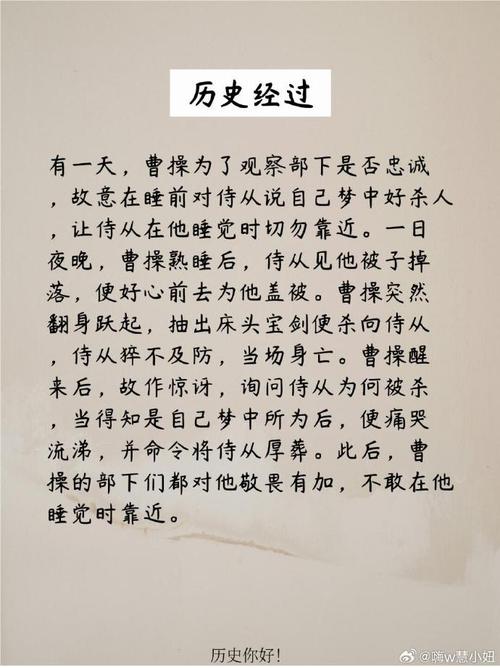 历史经过
有一天，曹操为了观察部下是否忠诚
，故意在睡前对侍从说自己梦中好杀人
，让侍从在他睡觉时切勿靠近。一日
夜晚，曹操熟睡后，侍从见他被子掉
落，便好心前去为他盖被。曹操突然
翻身跃起，抽出床头宝剑便杀向侍从
，侍从猝不及防，当场身亡。曹操醒
来后，故作惊讶，询问侍从为何被杀
，当得知是自己梦中所为后，便痛哭
流涕，并命令将侍从厚葬。此后，曹
操的部下们都对他敬畏有加，不敢在他
睡觉时靠近。
历史你好！
@嗨w慧小妞